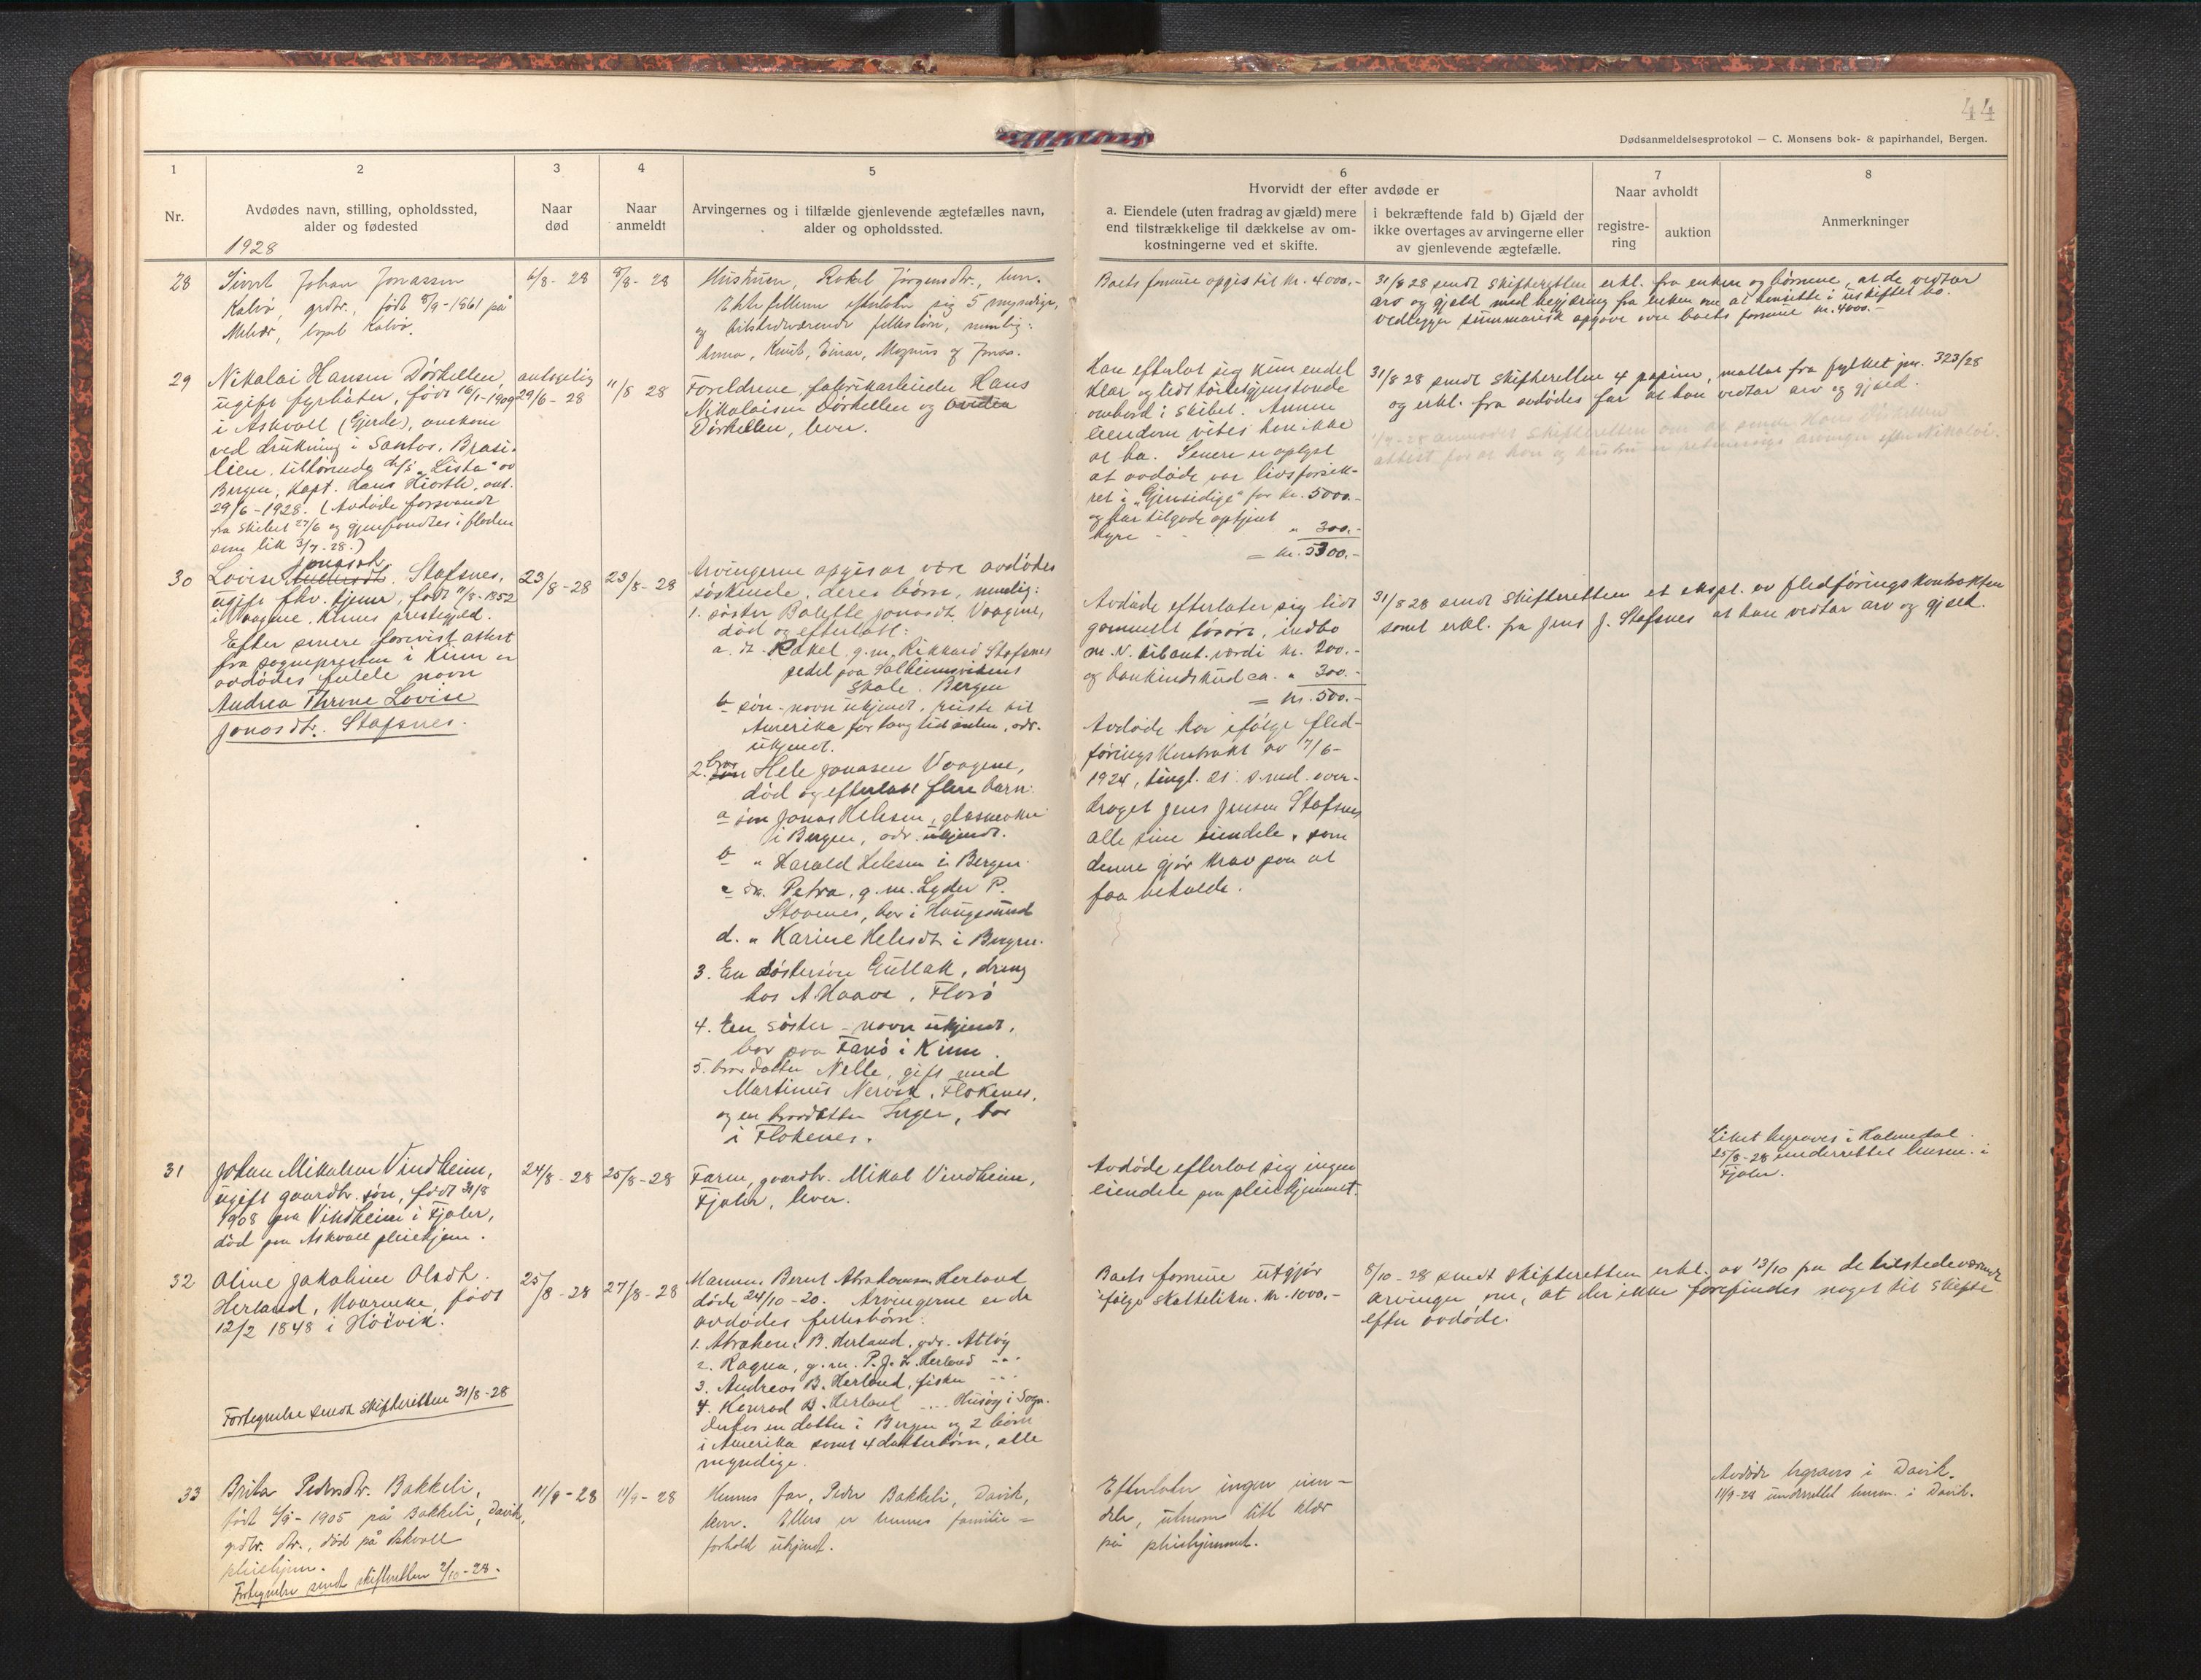 44
Dødsanmeldelsesprotokol — C. Monsens bok- & papirhandel, Bergen.
1
Nr.
2
Avdødes navn, stilling, opholdssted,
alder og fødested
3
Naar
død
4
Naar
anmeldt
5
Arvingernes og i tilfælde gjenlevende ægtefælles navn,
alder og opholdssted.
6
Hvorvidt der efter avdøde er
a. Eiendele (uten fradrag av gjæld) mere
end tilstrækkelige til dækkelse av om-
kostningerne ved et skifte.
i bekræftende fald b) Gjæld der
ikke overtages av arvingerne eller
av gjenlevende ægtefælle.
7
Naar avholdt
registre-
ring
auktion
8
Anmerkninger
1928
28
Sivert Johan Jonassen
Kalvø, grdbr., født 8/9-1861 på
Melvær, bopel Kalvø.
6/8-28
8/8-28
Hustruen, Rakel Jørgensdtr., lever.
Ektefellene efterlater sig 5 myndige,
og tilstedeværende fellesbørn, nemlig:
Anna, Knut, Einar, Magnus og Jonas.
Boets formue opgis til kr. 4000.-
31/8 28 sendt skifteretten erkl. fra enken og børnene, at de vedtar
arv og gjeld med begjæring fra enken om at hensitte i uskiftet bo.
vedlegger summarisk opgave over boets formue kr. 4000.-
29
Nikolai Hansen Dørhellen,
ugift fyrbøter, født 16/1-1909
i Askvoll (Gjerde), omkom
ved drukning i Santos, Brasi-
lien, tilhørende d/s "Lista" av
Bergen, kapt. Hans Hjorth, ant.
29/6-1928. (Avdøde forsvandt
fra skibet 27/6 og gjenfandtes i floden
som lik 3/7-28.)
antagelig
29/6-28
11/8 28
Foreldrene, fabrikarbeider Hans
Nikolaisen Dørhellen og Ovidia
Dørhellen, lever.
Han efterlot sig kun endel
klær og lidt toiletgjenstande
ombord i skibet. Annen
eiendom vites han ikke
at ha. Senere er oplyst
at avdøde var livsforsik-
ret i "Gjensidige" for kr. 5000.-
og har tilgode optjent
hyre " 300.-
= kr. 5300.-
31/8 28 sendt skifteretten 4 papirer, mottat fra fylket jnr. 323/28
og erkl. fra avdødes far at han vedtar arv og gjæld.
1/9-28 anmodet skifteretten om at sende Hans Dørhellen
attest for at han og hustru er retmessige arvinger efter Nikolai.
30
Jonsdt.
Lovise Stafsnes,
ugift fhv. tjener, født 11/8-1852
i Vaagene, Kinns prestegjeld.
Efter senere forevist attest
fra sognepresten i Kinn er
avdødes fulde navn
Andrea Thrine Lovise
Jonasdtr. Stafsnes.
23/8-28
23/8-28
Arvingerne opgis at være avdødes
søskende, deres børn, nemlig:
1. søster Bolette Jonasdt. Vaagene,
død og efterlatt:
a. dt. Rakel g.m. Rikkard Stafsnes
pedel paa Dalheimsvikens
skole. Bergen
b søn - navn ukjendt, reiste til
Amerika for lang tid siden, adr.
ukjendt.
2. bror Hele Jonasen Vaagene,
død og efterlatt flere barn:
a søn Jonas Helesen, glasmester
i Bergen, adr. ukjendt.
b " Harald Helesen i Bergen.
c dt. Petra, g.m. Lyder P.
Stavenes, bor i Haugesund
d. " Karine Helesdt. i Bergen.
3. En søstersøn Gullak, dreng
hos A. Haave, Florø
4. En søster - navn ukjendt,
bor paa Fanø i Kinn.
5. brordatter Nelle, gift med
Martinus Nervik, Flokenes,
og en brordatter Inger, bor
i Flokenes.
Avdøde efterlater sig lidt
gammelt løsøre, indbo
m.v. til ant. værdi kr. 200.-
og bankindskud ca. " 300.-
= kr. 500.-
Avdøde har ifølge fled-
føringskontrakt av 7/6-
1924, tingl. 21 s. md. over-
draget Jens Jensen Stafsnes
alle sine eiendele, som
denne gjør krav paa at
faa beholde.
31/8 28 sendt skifteretten et ekspl. av fledføringskontrakten
samt erkl. fra Jens J. Stafsnes at han vedtar arv og gjæld.
31
Johan Mikalsen Vindheim,
ugift gaardbr. søn, født 31/8
1908 paa Vindheim i Fjaler,
død paa Askvoll pleiehjem.
24/8-28
25/8-28
Faren, gaardbr. Mikal Vindheim,
Fjaler, lever.
Avdøde efterlot sig ingen
eiendele paa pleiehjemmet.
Liket begraves i Holmedal.
25/8-28 underrettet lensm. i
Fjaler.
32
Oline Jakobine Olsdtr.
Herland, Kvarneke, født
12/2 1848 i Høivik.
Fortegnelse sendt skifteretten 31/8-28
25/8-28
27/8-28
Mannen Bernt Abrahamsen Herland
døde 24/10-20. Arvingerne er de
avdødes fellesbørn:
1. Abraham B. Herland, adr. Atløy
2. Ragna, g.m. P.J.L. Herland "
3. Andreas B. Herland, fisker "
4. Konrad B. Herland .... Husøy i Sogn.
Derfor en datter i Bergen og 2 børn
i Amerika samt 4 datterbørn, alle
myndige.
Boets formue utgjør
ifølge skattelikn. kr. 1000.-
8/10-28 sendt skifteretten erkl. av 13/10 fra de tilstedeværende
arvinger om, at der ikke forefindes noget til skifte
efter avdøde.
33
Brita Pedersdtr. Bakkeli,
født 6/9-1905 på Bakkeli, Davik,
grdbr. dtr., død på Askvoll
pleiehjem.
Fortegnelse sendt skifteretten 2/10-28.
11/9-28
11/9-28
Hennes far, Peder Bakkeli, Davik,
lever. Ellers er hennes familie=
forhold ukjent.
Efterlater ingen eien=
deler, utenom litt klær
på pleiehjemmet.
Avdøde begraves i Davik.
11/9-28 underrettet lensm. i Davik.